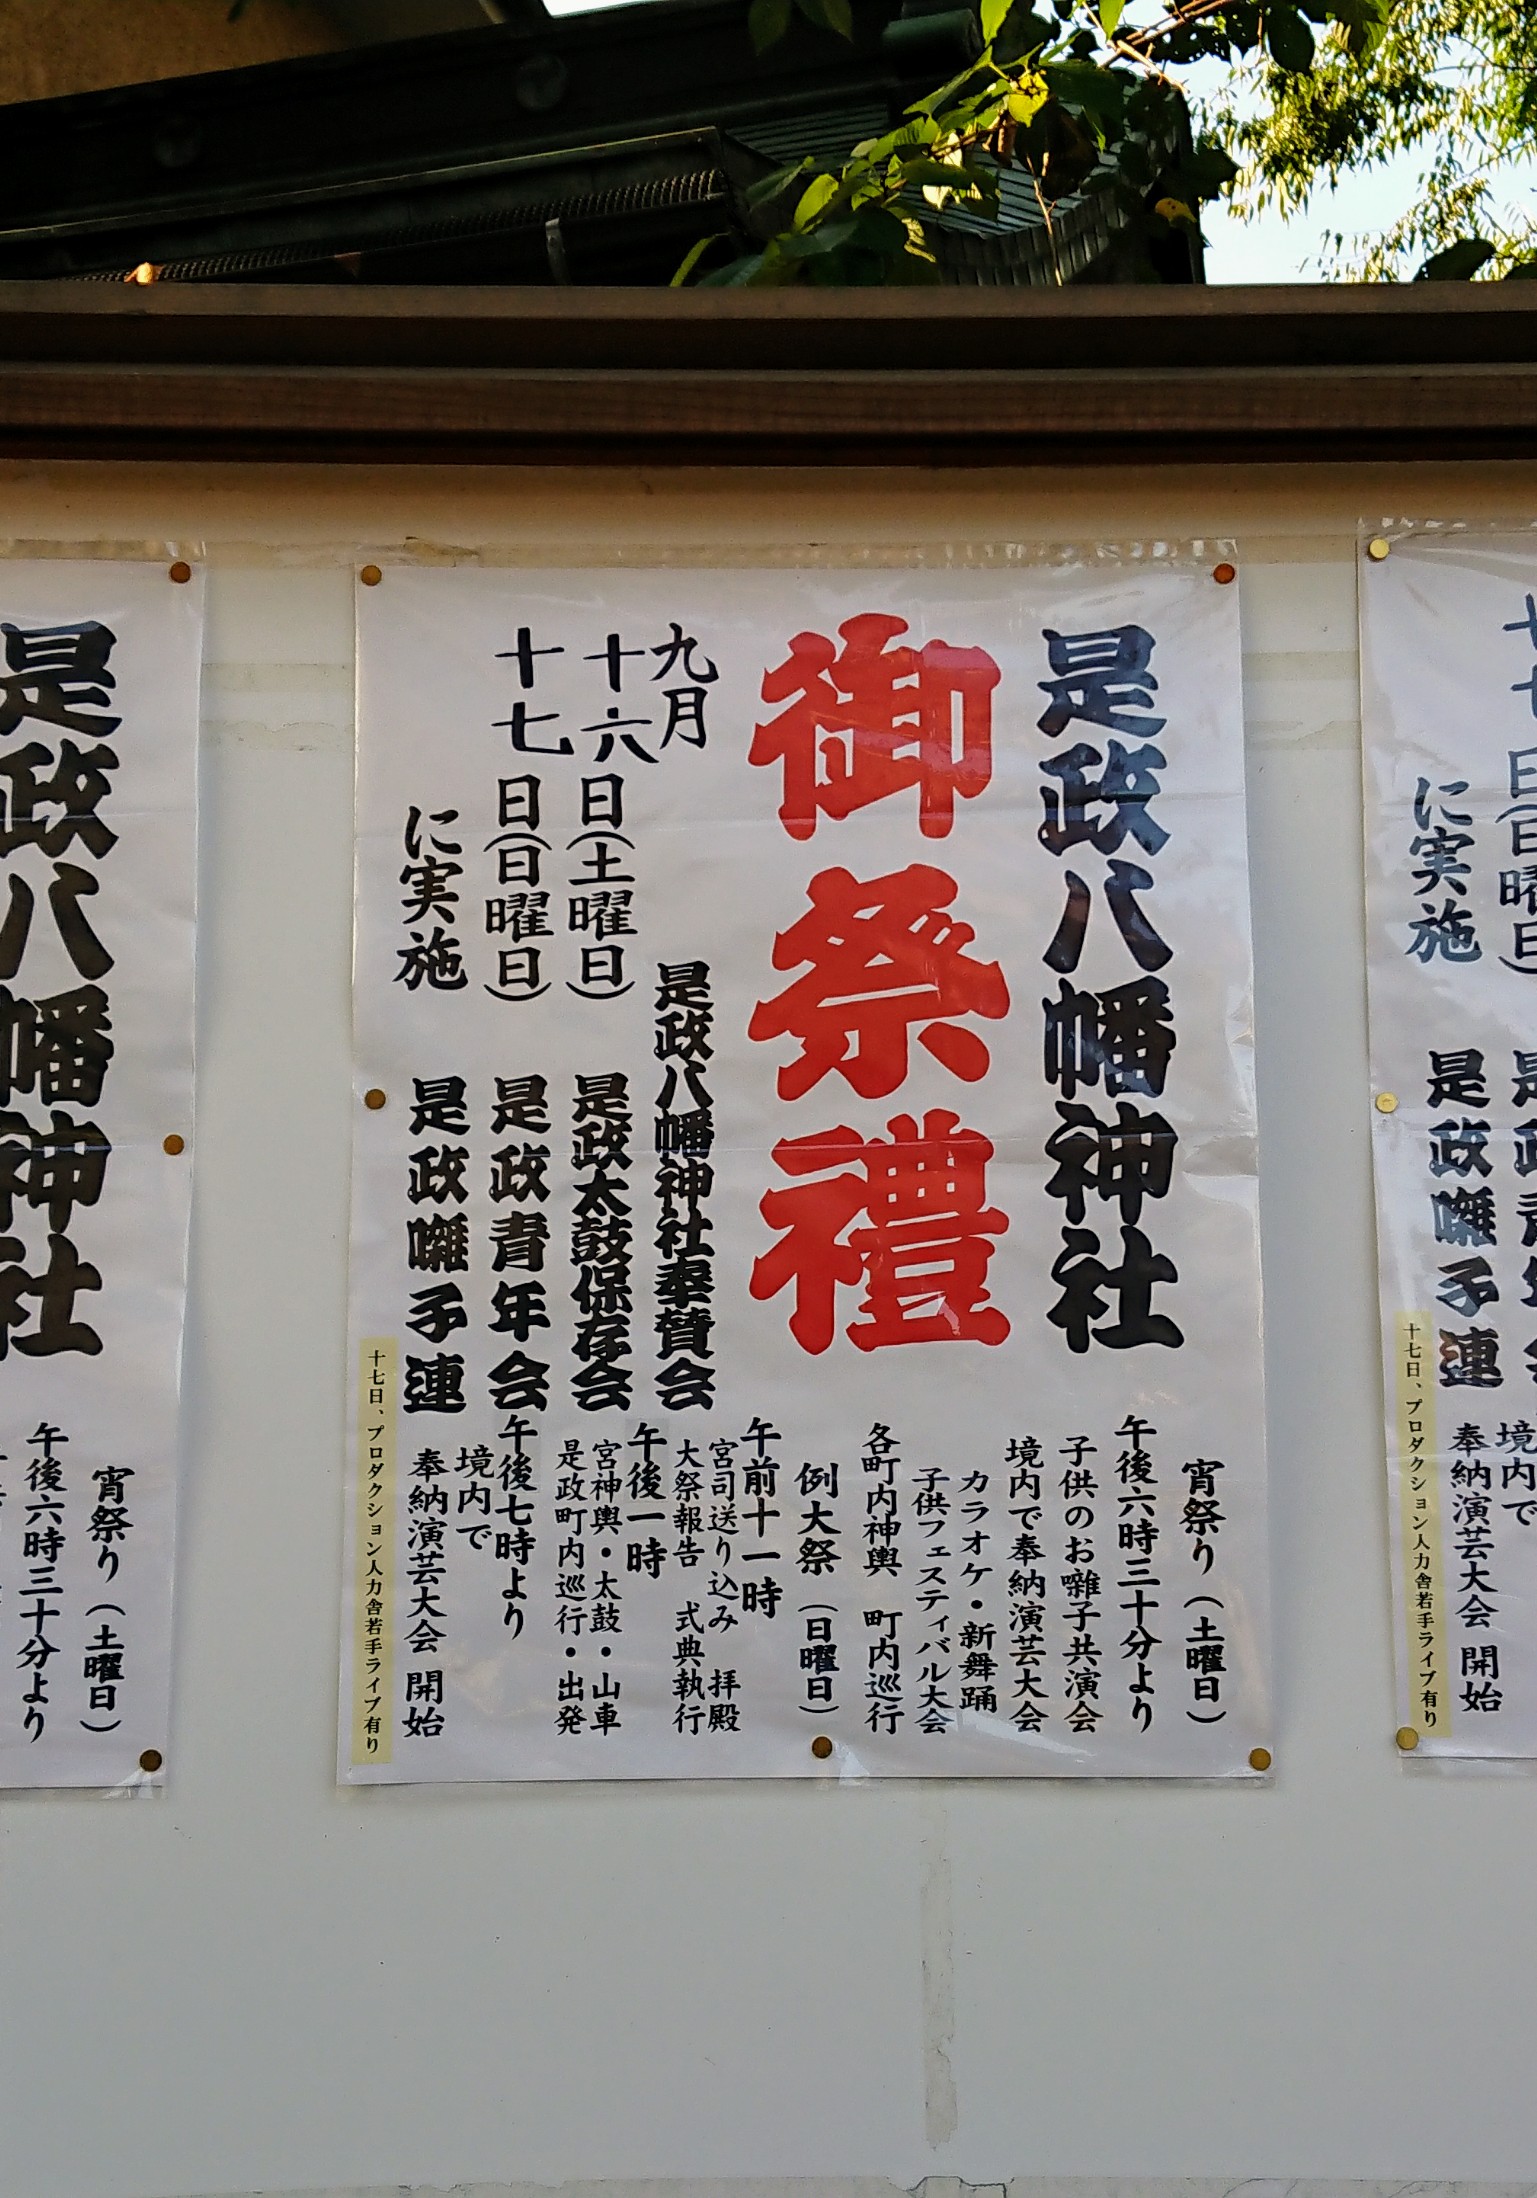 是政八幡神社
御祭禮
九月
十六日(土曜日)
十七日(日曜日)
に実施
是政八幡神社奉賛会
是政太鼓保存会
是政青年会
是政囃子連
宵祭り(土曜日)
午後六時三十分より
子供のお囃子共演会
境内で奉納演芸大会
カラオケ・新舞踊
子供フェスティバル大会
各町内神輿 町内巡行
例大祭(日曜日)
午前十一時
宮司送り込み 拝殿
大祭報告 式典執行
午後一時
宮神輿・太鼓・山車
是政町内巡行・出発
午後七時より
境内で
奉納演芸大会 開始
十七日、プロダクション人力舎若手ライブ有り
是政八幡神社
宵祭り(土曜日)
午後六時三十分より
日(日曜日)
に実施
是政囃子連
境内で
奉納演芸大会 開始
十七日、プロダクション人力舎若手ライブ有り